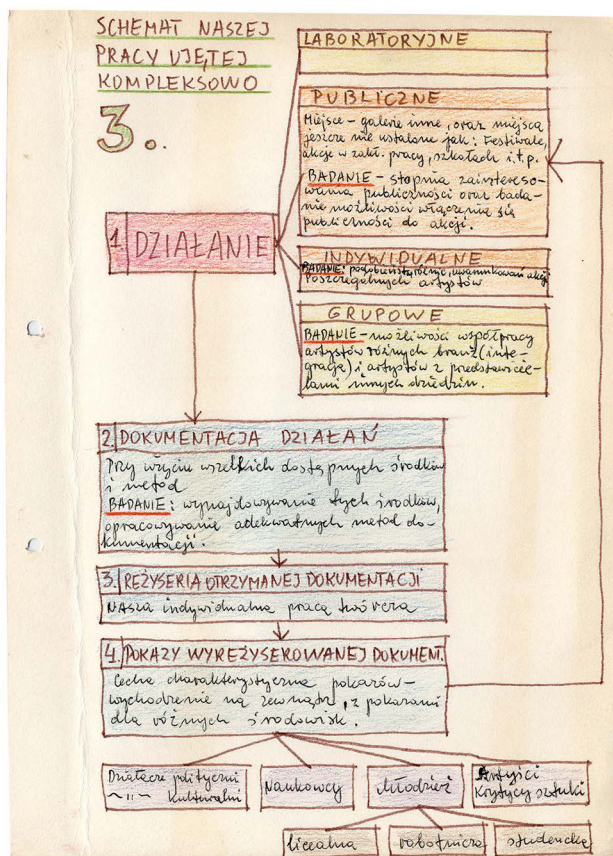 SCHEMAT NASZEJ
PRACY UJĘTEJ
KOMPLEKSOWO
3.
LABORATORYJNE
PUBLICZNE
Miejsce – galerie inne, oraz miejsca
jeszcze nie ustalone jak: Festiwale,
akcje w zakł. pracy, szkołach i.t.p.
BADANIE – stopnia zaintereso-
wania publiczności oraz bada-
nie możliwości włączenia się
publiczności do akcji.
1. DZIAŁANIE
INDYWIDUALNE
BADANIE: podobieństw, różnic, uwarunkowań akcji
poszczególnych artystów
GRUPOWE
BADANIE – możliwości współpracy
artystów różnych branż (inte-
gracja) i artystów z przedstawicie-
lami innych dziedzin.
2. DOKUMENTACJA DZIAŁAŃ
Przy użyciu wszelkich dostępnych środków
i metod
BADANIE: wynajdowywanie tych środków,
opracowywanie adekwatnych metod do-
kumentacji.
3. REŻYSERIA OTRZYMANEJ DOKUMENTACJI
Nasza indywidualna praca twórcza
4. POKAZY WYREŻYSEROWANEJ DOKUMENT.
Cecha charakterystyczna pokazów –
wychodzenie na zewnątrz, z pokazami
dla różnych środowisk.
Działacze polityczni
~ 11 ~ kulturalni
Naukowcy
Młodzież
Artyści
Krytycy sztuki
licealna
robotnicza
studencka